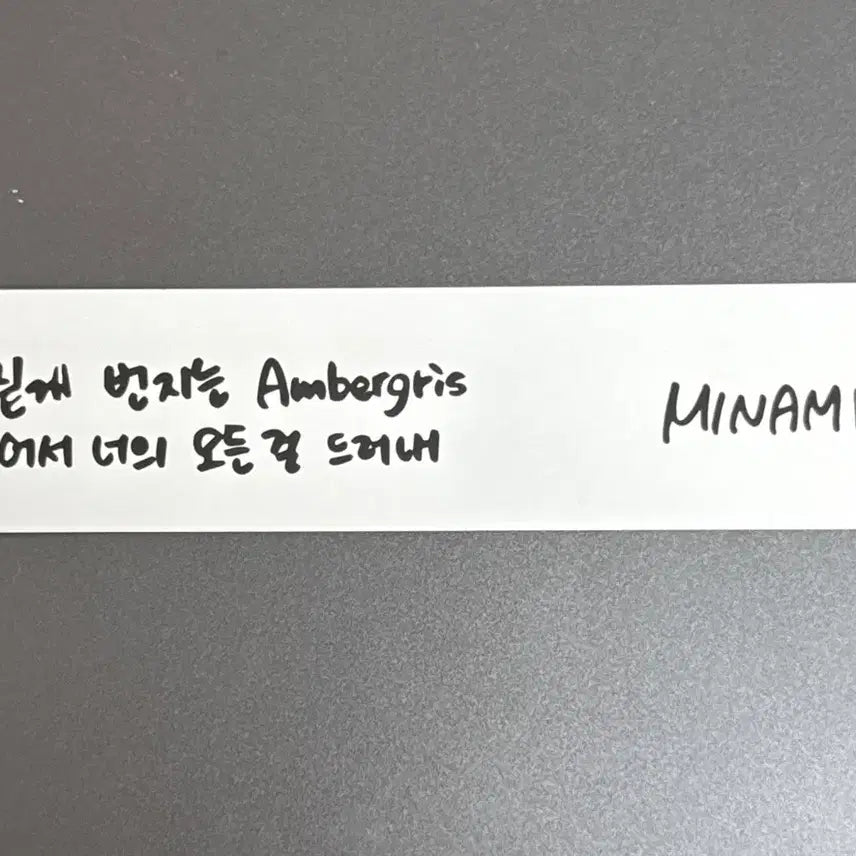 짙게 번지는 Ambergris
어서 너의 모든 걸 드러내
MINAMI